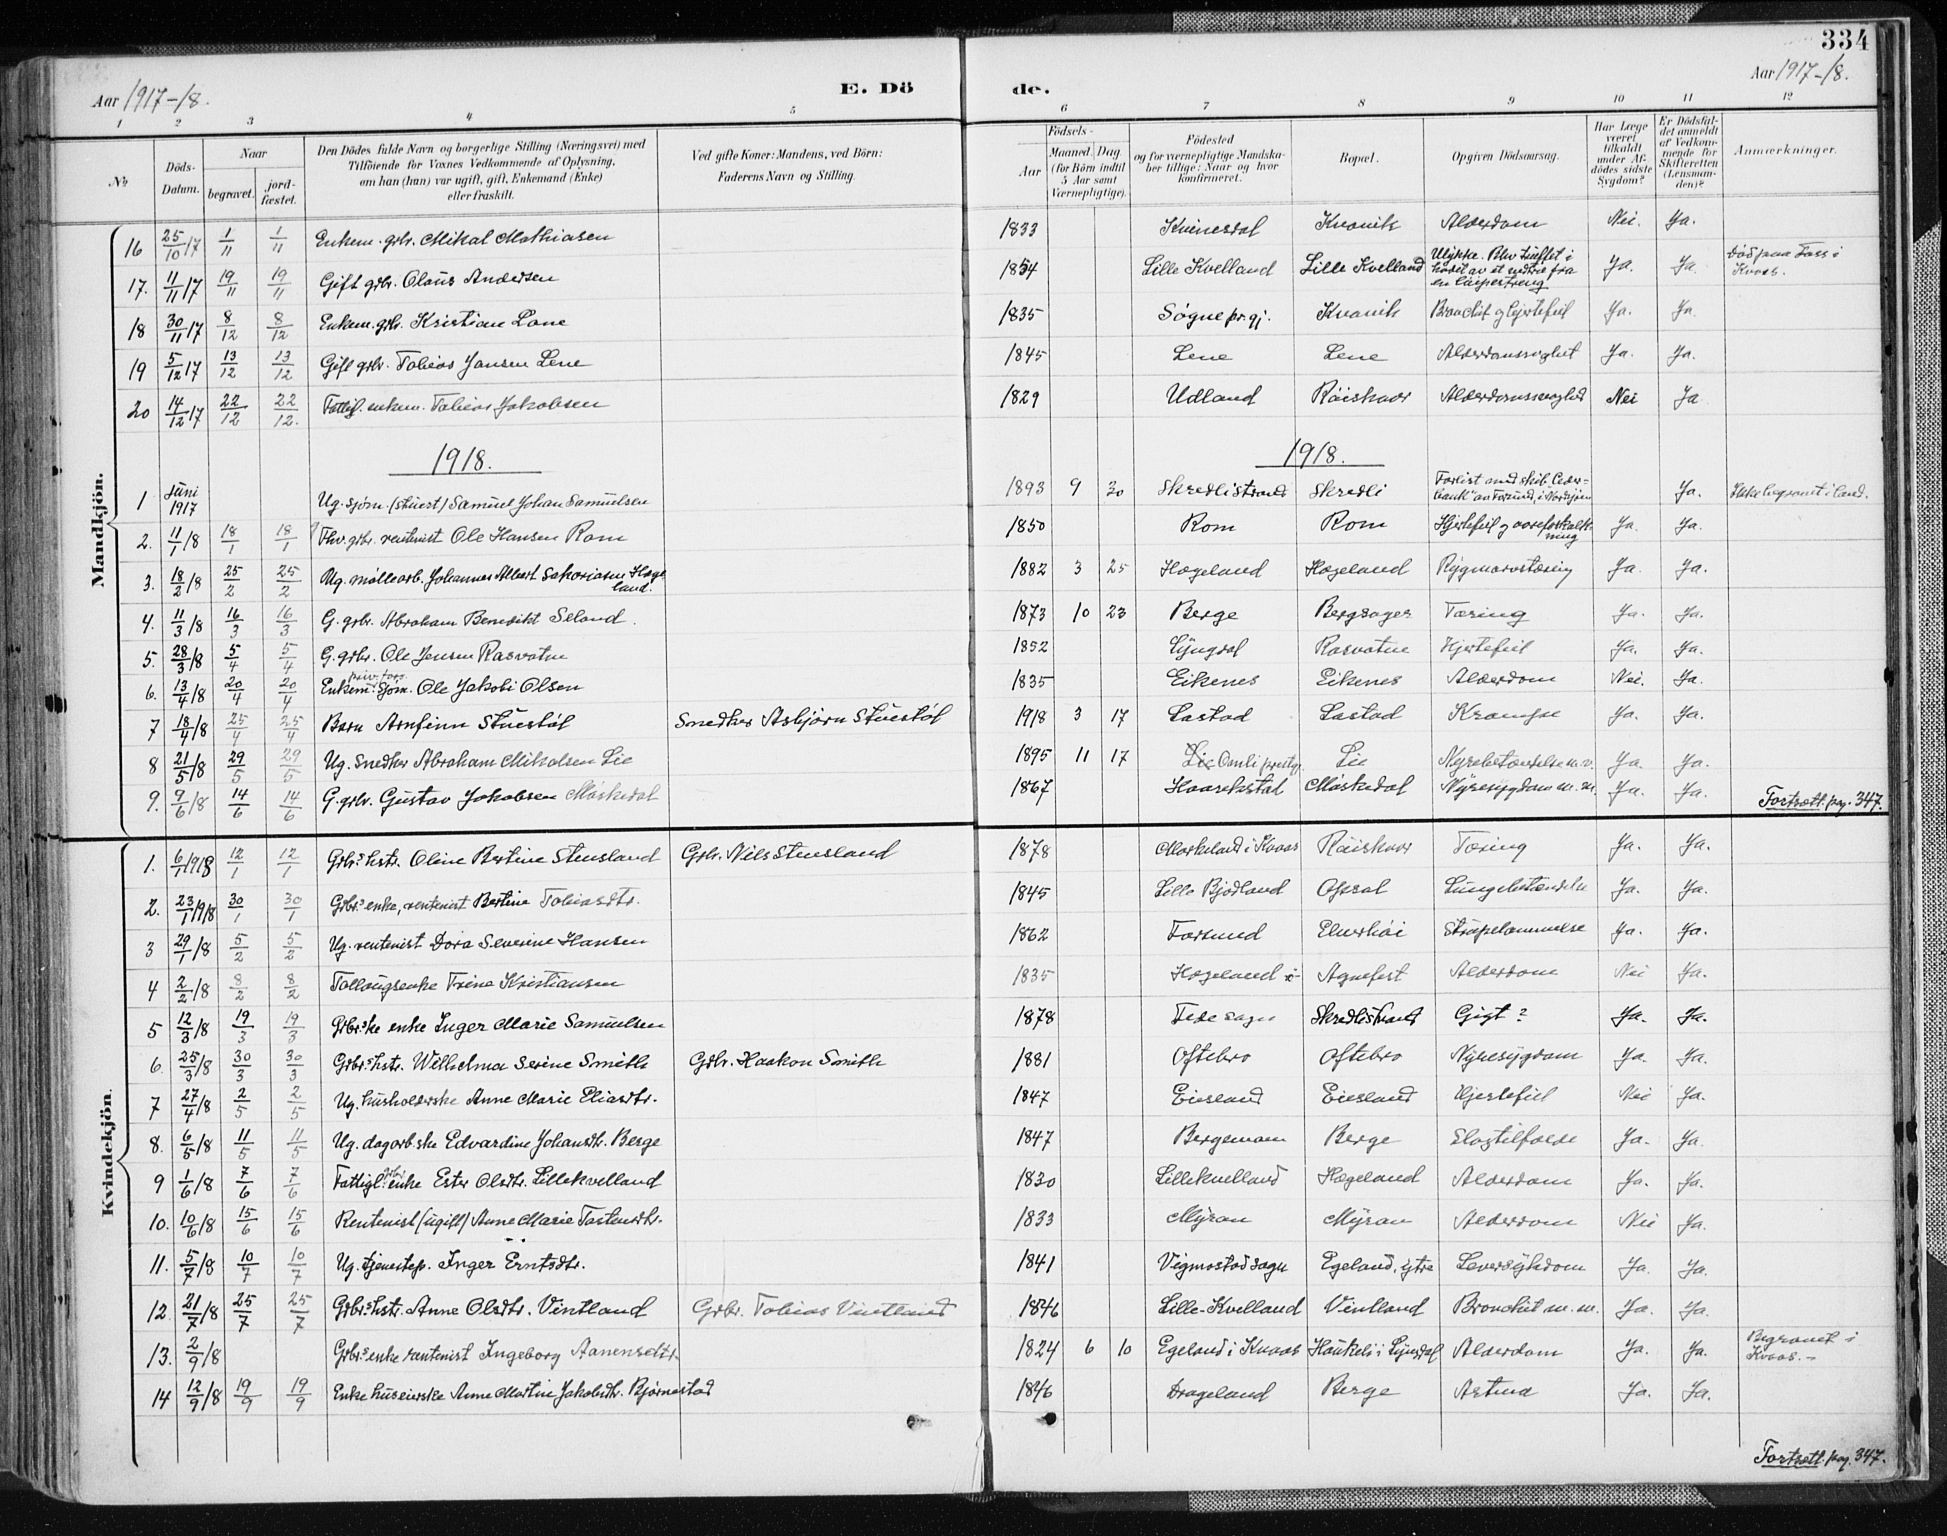 334
Aar 1917-18.
E. Döde.
Aar 1917-18.
1 2 3 4 5 6 7 8 9 10 11 12
No.
Döds-Datum.
Naar
begravet.
jord-fæstet.
Den Dödes fulde Navn og borgerlige Stilling (Næringsvei) med
Tilföiende for Voxnes Vedkommende af Oplysning,
om han (hun) var ugift, gift, Enkemand (Enke)
eller fraskilt.
Ved gifte Koner: Mandens, ved Börn:
Faderens Navn og Stilling.
Födsels-
Aar
Maaned.
Dag.
(for Börn indtil
5 Aar samt
Værnepligtige).
Födested
og for værnepligtige Mandska-
ber tillige: Naar og hvor
konfirmeret.
Bopæl.
Opgiven Dödsaarsag.
Har Læge
været
tilkaldt
under Af-
dödes sidste
Sygdom?
Er Dödsfal-
det anmeldt
af Vedkom-
mende for
Skifteretten
(Lensman-
den)?
Anmærkninger.
Mandkjön.
16 25/10 17 1/11 1/11 Enkem. grbr. Mikal Mathiasen 1833 Kvinesdal Kvavik Alderdom Nei. Ja.
17. 11/11 17 19/11 19/11 Gift grbr. Olaus Andersen 1854 Lille Kvelland Lille Kvelland Ulykke. Ja. Ja.
18 30/11 17 8/12 8/12 Enkem. grbr. Kristian Lone 1835 Søgne pr.gj. Kvavik Bronchit og hjertefeil Ja. Ja.
19 5/12 17 13/12 13/12 Gift grbr. Tobias Jansen Lene 1845 Lene Lene Alderdomssvaghet Ja. Ja.
20 14/12 17 22/12 22/12. Fattigl. enkem. Tobias Jakobsen 1829 Udland Röiskaar Alderdomssvaghed Nei Ja
1918. 1918.
1 Juni 1917 Ug. sjøm. (stuert) Samuel Johan Samuelsen 1893 9 30 Skredlistrand Skredli Ja. Ikke begravet i land.
2. 11/1 18 18/1 18/1 grbr. rentenist Ole Hansen Rom 1850 Rom Rom Hjertefeil og aareforkalkning Ja. Ja.
3. 18/2 18 25/2 25/2 Ug. møllearb. Johannes Albert Sakariasen Hægeland. 1882 3 25 Hægeland Hægeland Rygmarvstæring Ja. Ja.
4. 11/3 18 16/3 16/3 G. grbr. Abraham Benedikt Seland. 1873 10 23 Berge Bergsager Tæring Ja. Ja.
5. 28/3 18 5/4 5/4 G. grbr. Ole Jensen Rasvatne 1852 Lyngdal Rasvatne Hjertefeil Ja. Ja.
6. 13/4 18 20/4 20/4 Enkem. priv. fors. sjøm. Ole Jakobi Olsen 1835 Eikenes Eikenes Alderdom Nei. Ja.
7 18/4 18 25/4 25/4 Barn Arnfinn Stuestøl Snedker Asbjørn Stuestøl 1918 3 17 Lastad Lastad Krampe Ja. Ja.
8 21/5 18 29/5 29/5 Ug. snedker Abraham Mikalsen Lie 1895 11 17 Lie Omli prestg. Lie Nyrebetændelse m.v. Ja. Ja.
9. 9/6 18 14/6 14/6 G. grbr. Gustav Jakobsen Møskedal 1867 Kaarikstad Møskedal Nyresygdom m.m. Ja. Ja. Fortsætt. pag. 347.
Kvindekjön.
1. 6/1 1918 12/1 12/1 Grbr.s hstr. Oline Bertine Stensland Grbr. Nils Stensland 1878 Mørkeland i Kvaas Röiskaar Tæring Ja. Ja.
2. 23/1 1918 30/1 30/1 Grbr.s enke, rentenist Bertine Tobiasdtr. 1845 Lille Bjødland Opsal Lungebetændelse Ja. Ja.
3 29/1 18 5/2 5/2 Ug. rentenist Dora Severine Hansen 1862 Farsund Elverhøi Strupelammelse Ja. Ja.
4 2/2 18 8/2 8/2 Tollougsenke Trine Kristiansen 1835 Hægeland Agnefest Alderdom Nei Ja.
5 12/3 18 19/3 19/3 Grbr.ske enke Inger Marie Samuelsen 1878 Fede sogn Skredlistrand Gigt? Ja. Ja.
6. 25/3 18 30/3 30/3 Grbr.s hstr. Wilhelma Serine Smith Grbr. Haakon Smith 1881 Oftebro Oftebro Nyresygdom Ja. Ja.
7 27/4 18 2/5 2/5 Ug. husholderske Anne Marie Eliasdtr. 1847 Eiesland Eiesland Hjertefeil Nei Ja.
8. 6/5 18 11/5 11/5 Ug. dagarb.ske Edvardine Johansdtr. Berge 1847 Bergemoen Berge Slagtilfælde Ja. Ja.
9 1/6 18 7/6 7/6 Fattigl. grbr. enke Ester Olsdtr. Lillekvelland 1830 Lillekvelland Hægeland Alderdom Ja. Ja.
10. 10/6 18 15/6 15/6 Rentenist (ugift) Anne Marie Tostensdtr. 1833 Myran Myran Alderdom Nei Ja.
11. 5/7 18 10/7 10/7 Ug. tjenestep. Inger Erntsdtr. 1841 Vigmostad sogn Egeland, ytre Leversykdom Ja. Ja.
12. 21/7 18 25/7 25/7 Grbr.s hstr. Anne Olsdtr. Vintland Grbr. Tobias Vintland 1846 Lille-Kvelland Vintland Bronchit m.m. Ja. Ja.
13. 2/9 18 Grbr.s enke rentenist Ingeborg Aanensdtr. 1824 6 10 Egeland i Kvaas Haukeli i Lyngdal Alderdom Ja. Ja. Begravet i Kvaas.-
14 12/9 18 19/9 19/9 Enke huseierske Anne Martine Jakobsdtr. Bjørnestad 1846 Drageland Berge Astma Ja. Ja.
Fortsætt. pag. 347.